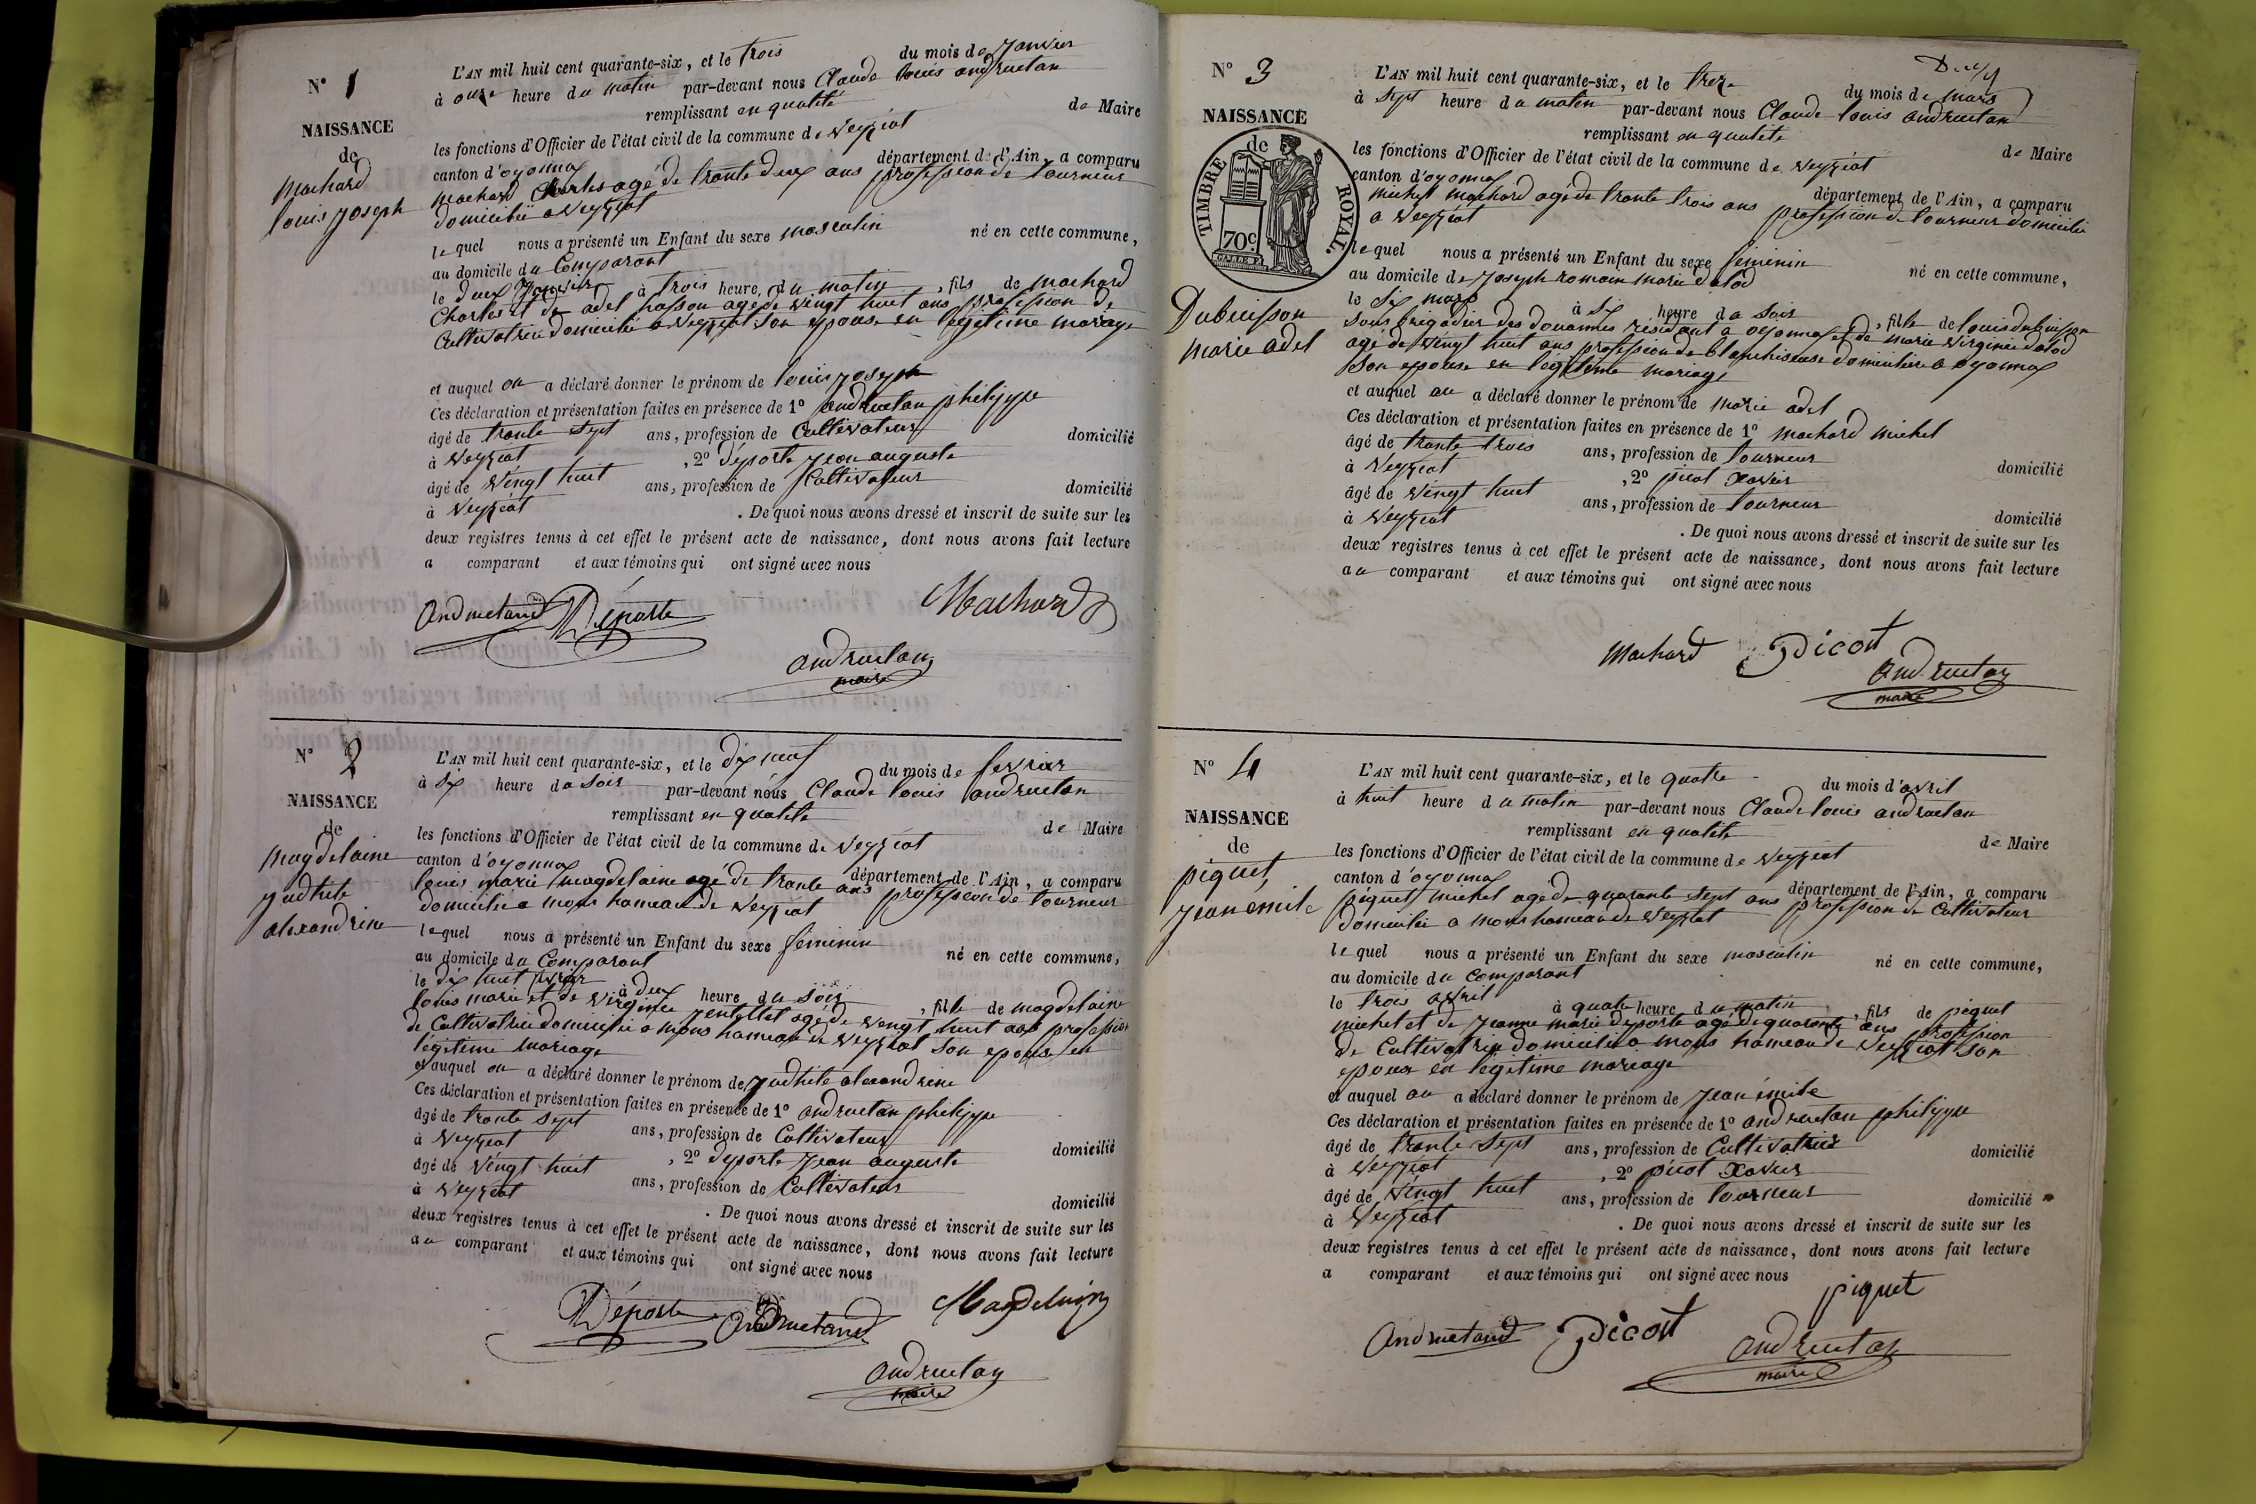 N° 1
NAISSANCE
de
Machard
louis joseph
L'AN mil huit cent quarante-six, et le trois du mois de janvier
à onze heure du matin par-devant nous Claude louis andruetan
remplissant en qualité de Maire
les fonctions d'Officier de l'état civil de la commune de veyziat
canton d'oyonnax département de l'Ain, a comparu
machard Charles agé de trante deux ans profession de tourneur
domicilié a veyziat
le quel nous a présenté un Enfant du sexe masculin né en cette commune,
au domicile du Comparant
le deux janvier à trois heure, du matin, fils de machard
Charles et de adel agé de vingt huit ans profession de
Cultivatrice domicilié a veyziat son epouse en légitime mariage
et auquel on a déclaré donner le prénom de louis joseph
Ces déclaration et présentation faites en présence de 1° andruetan philippe
âgé de trante sept ans, profession de Cultivateur domicilié
à veyziat, 2° déporte jean auguste
âgé de vingt huit ans, profession de Cultivateur domicilié
à veyziat. De quoi nous avons dressé et inscrit de suite sur les
deux registres tenus à cet effet le présent acte de naissance, dont nous avons fait lecture
a comparant et aux témoins qui ont signé avec nous
Andruetand Déporte Machard
andruetan
maire
N° 2
NAISSANCE
de
magdelaine
judhite
alexandrine
L'AN mil huit cent quarante-six, et le dix neuf du mois de fevrier
à six heure du soir par-devant nous Claude louis andruetan
remplissant en qualité de Maire
les fonctions d'Officier de l'état civil de la commune de veyziat
canton d'oyonnax département de l'Ain, a comparu
louis marie magdelaine agé de trante ans profession de tourneur
domicilié a mons hameau de veyziat
le quel nous a présenté un Enfant du sexe feminin né en cette commune,
au domicile du Comparant
le dix huit fevrier à deux heure du soir, fille de magdelaine
louis marie et de virginie agé de vengt huit ans profession
de Cultivatrice domicilié a mons hameau de veyziat son epouse en
légitime mariage
et auquel on a déclaré donner le prénom de judhite alexandrine
Ces déclaration et présentation faites en présence de 1° andruetan philippe
âgé de trante sept ans, profession de Cultivateur domicilié
à veyziat, 2° deporte jean auguste
âgé de vengt huit ans, profession de Cultivateur domicilié
à veyziat. De quoi nous avons dressé et inscrit de suite sur les
deux registres tenus à cet effet le présent acte de naissance, dont nous avons fait lecture
au comparant et aux témoins qui ont signé avec nous
Déporte Andruetand Magdelaine
andruetan
maire
N° 3
NAISSANCE
de
TIMBRE ROYAL.
70c.
Dubuisson
marie adel
L'AN mil huit cent quarante-six, et le treze du mois de mars
à sept heure du matin par-devant nous Claude louis andruetan
remplissant en qualité de Maire
les fonctions d'Officier de l'état civil de la commune de veyziat
canton d'oyonnax département de l'Ain, a comparu
michel machard agé de trante trois ans profession de tourneur domicilié
a veyziat
le quel nous a présenté un Enfant du sexe feminin né en cette commune,
au domicile de joseph romain marie dalod
le six mars à six heure du soir, fille de louis dubuisson
sous brigadier des douannes résidant a oyonnax et de marie virginie dalod
agé de vingt huit ans profession de blanchiseuse domiciliée a oyonnax
son epouse en légitime mariage
et auquel on a déclaré donner le prénom de marie adel
Ces déclaration et présentation faites en présence de 1° machard michel
âgé de trante trois ans, profession de tourneur domicilié
à veyziat, 2° picot xavier
âgé de vingt huit ans, profession de tourneur domicilié
à veyziat. De quoi nous avons dressé et inscrit de suite sur les
deux registres tenus à cet effet le présent acte de naissance, dont nous avons fait lecture
au comparant et aux témoins qui ont signé avec nous
Machard Picot
andruetan
maire
N° 4
NAISSANCE
de
piquet
jean emile
L'AN mil huit cent quarante-six, et le quatre du mois d'avril
à huit heure du matin par-devant nous Claude louis andruetan
remplissant en qualité de Maire
les fonctions d'Officier de l'état civil de la commune de veyziat
canton d'oyonnax département de l'Ain, a comparu
piquet michel agé de quarante sept ans profession de Cultivateur
domicilié a mons hameau de veyziat
le quel nous a présenté un Enfant du sexe masculin né en cette commune,
au domicile du comparant
le trois avril à quatre heure du matin, fils de piquet
michel et de jeanne marie déporte agé de quarante ans profession
de Cultivatrice domicilié a mons hameau de veyziat son
epouse en légitime mariage
et auquel on a déclaré donner le prénom de jean émile
Ces déclaration et présentation faites en présence de 1° andruetan philippe
âgé de trante sept ans, profession de Cultivatrice domicilié
à veyziat, 2° picot xavier
âgé de vingt huit ans, profession de tourneur domicilié
à veyziat. De quoi nous avons dressé et inscrit de suite sur les
deux registres tenus à cet effet le présent acte de naissance, dont nous avons fait lecture
a comparant et aux témoins qui ont signé avec nous
piquet
Andruetand Picot andruetan
maire